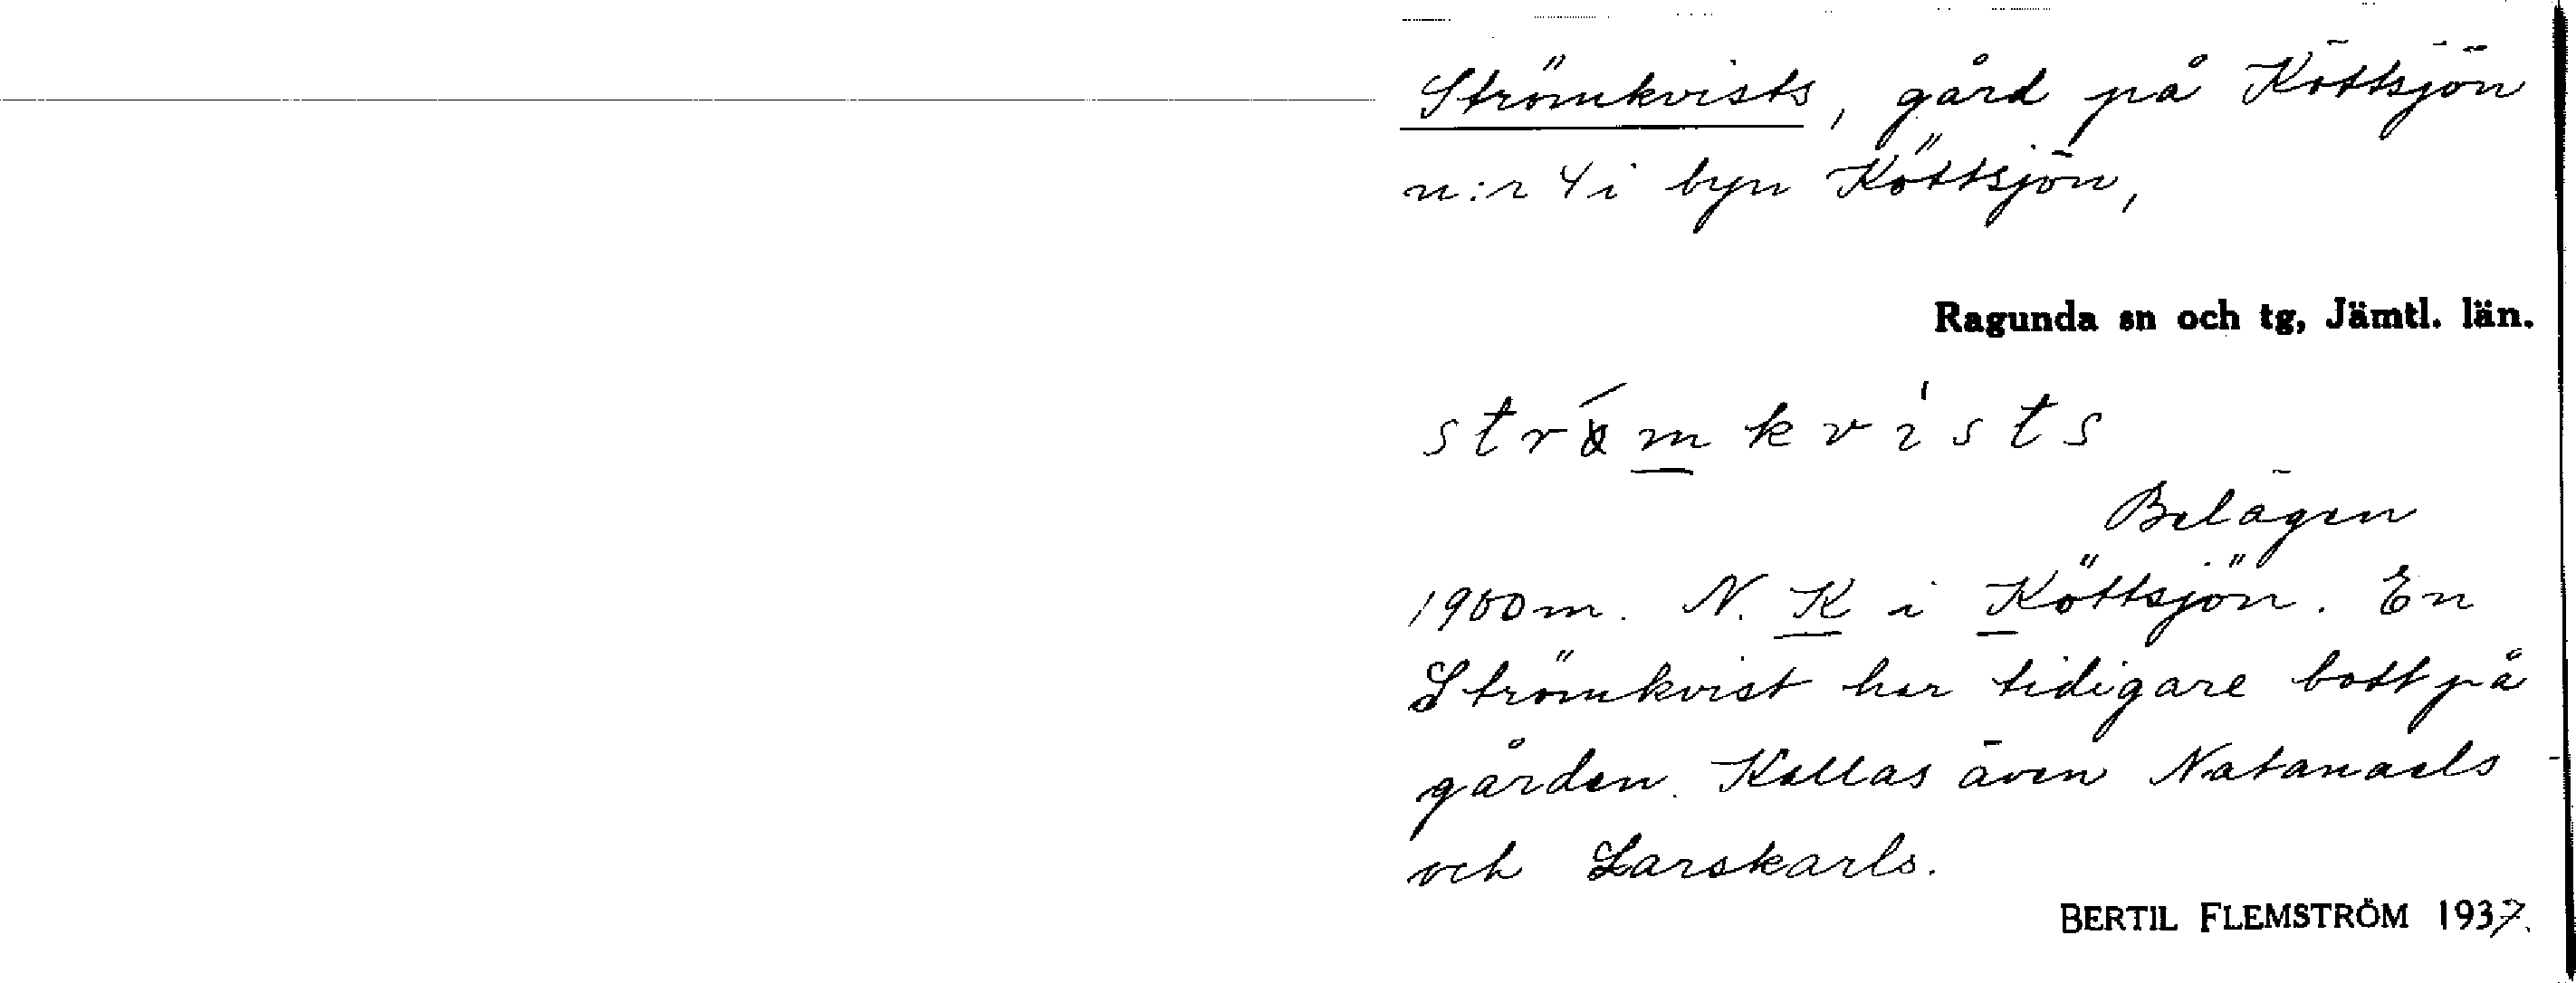 Strömkvists, gård på Köttsjön
n:r 4 i byn Köttsjön,
Ragunda sn och tg, Jämtl. län.
Belägen
1900 m. N. K i Köttsjön. En
Strömkvist har tidigare bott på
gården. Kallas även Natanaels
och Larskarls.
BERTIL FLEMSTRÖM 1937.